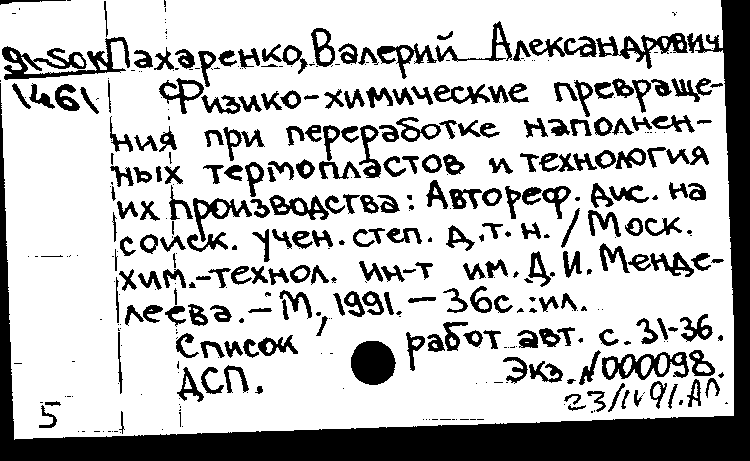 91-SOK Пахаренко, Валерий Александрович
1461 Физико-химические превраще-
ния при переработке наполнен-
ных термопластов и технология
их производства: Автореф. дис. на
соиск. учен. степ. д.т.н. / Моск.
хим.-технол. ин-т им. Д.И. Менде-
леева. - М., 1991. - 36с.: ил.
Список работ авт. с. 31-36.
ДСП. Экз. N000098.
5 23/IV91.АП